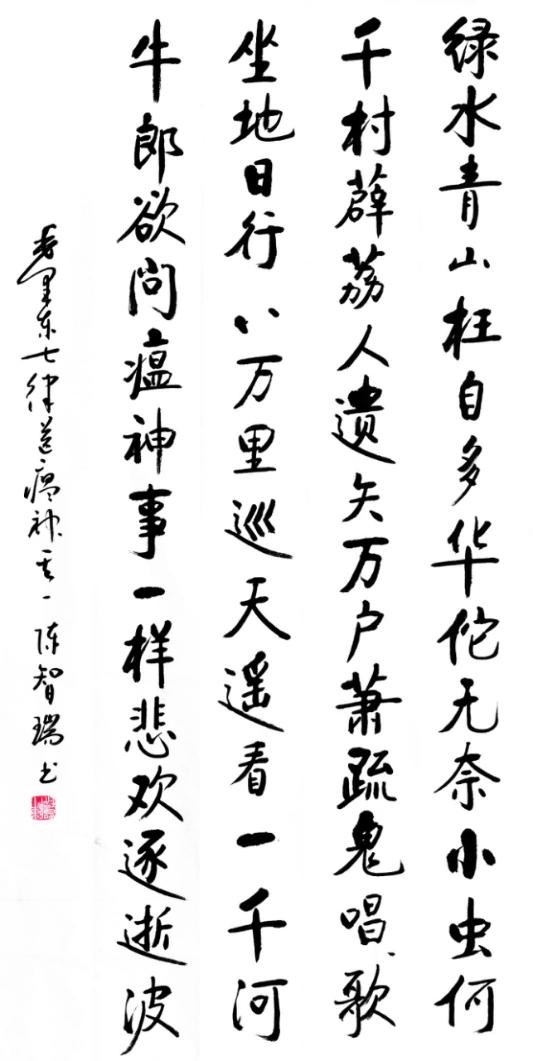 绿水青山枉自多华佗无奈小虫何
千村薜荔人遗矢万户萧疏鬼唱歌
坐地日行八万里巡天遥看一千河
牛郎欲问瘟神事一样悲欢逐逝波
毛泽东七律送瘟神其一陈智瑞书